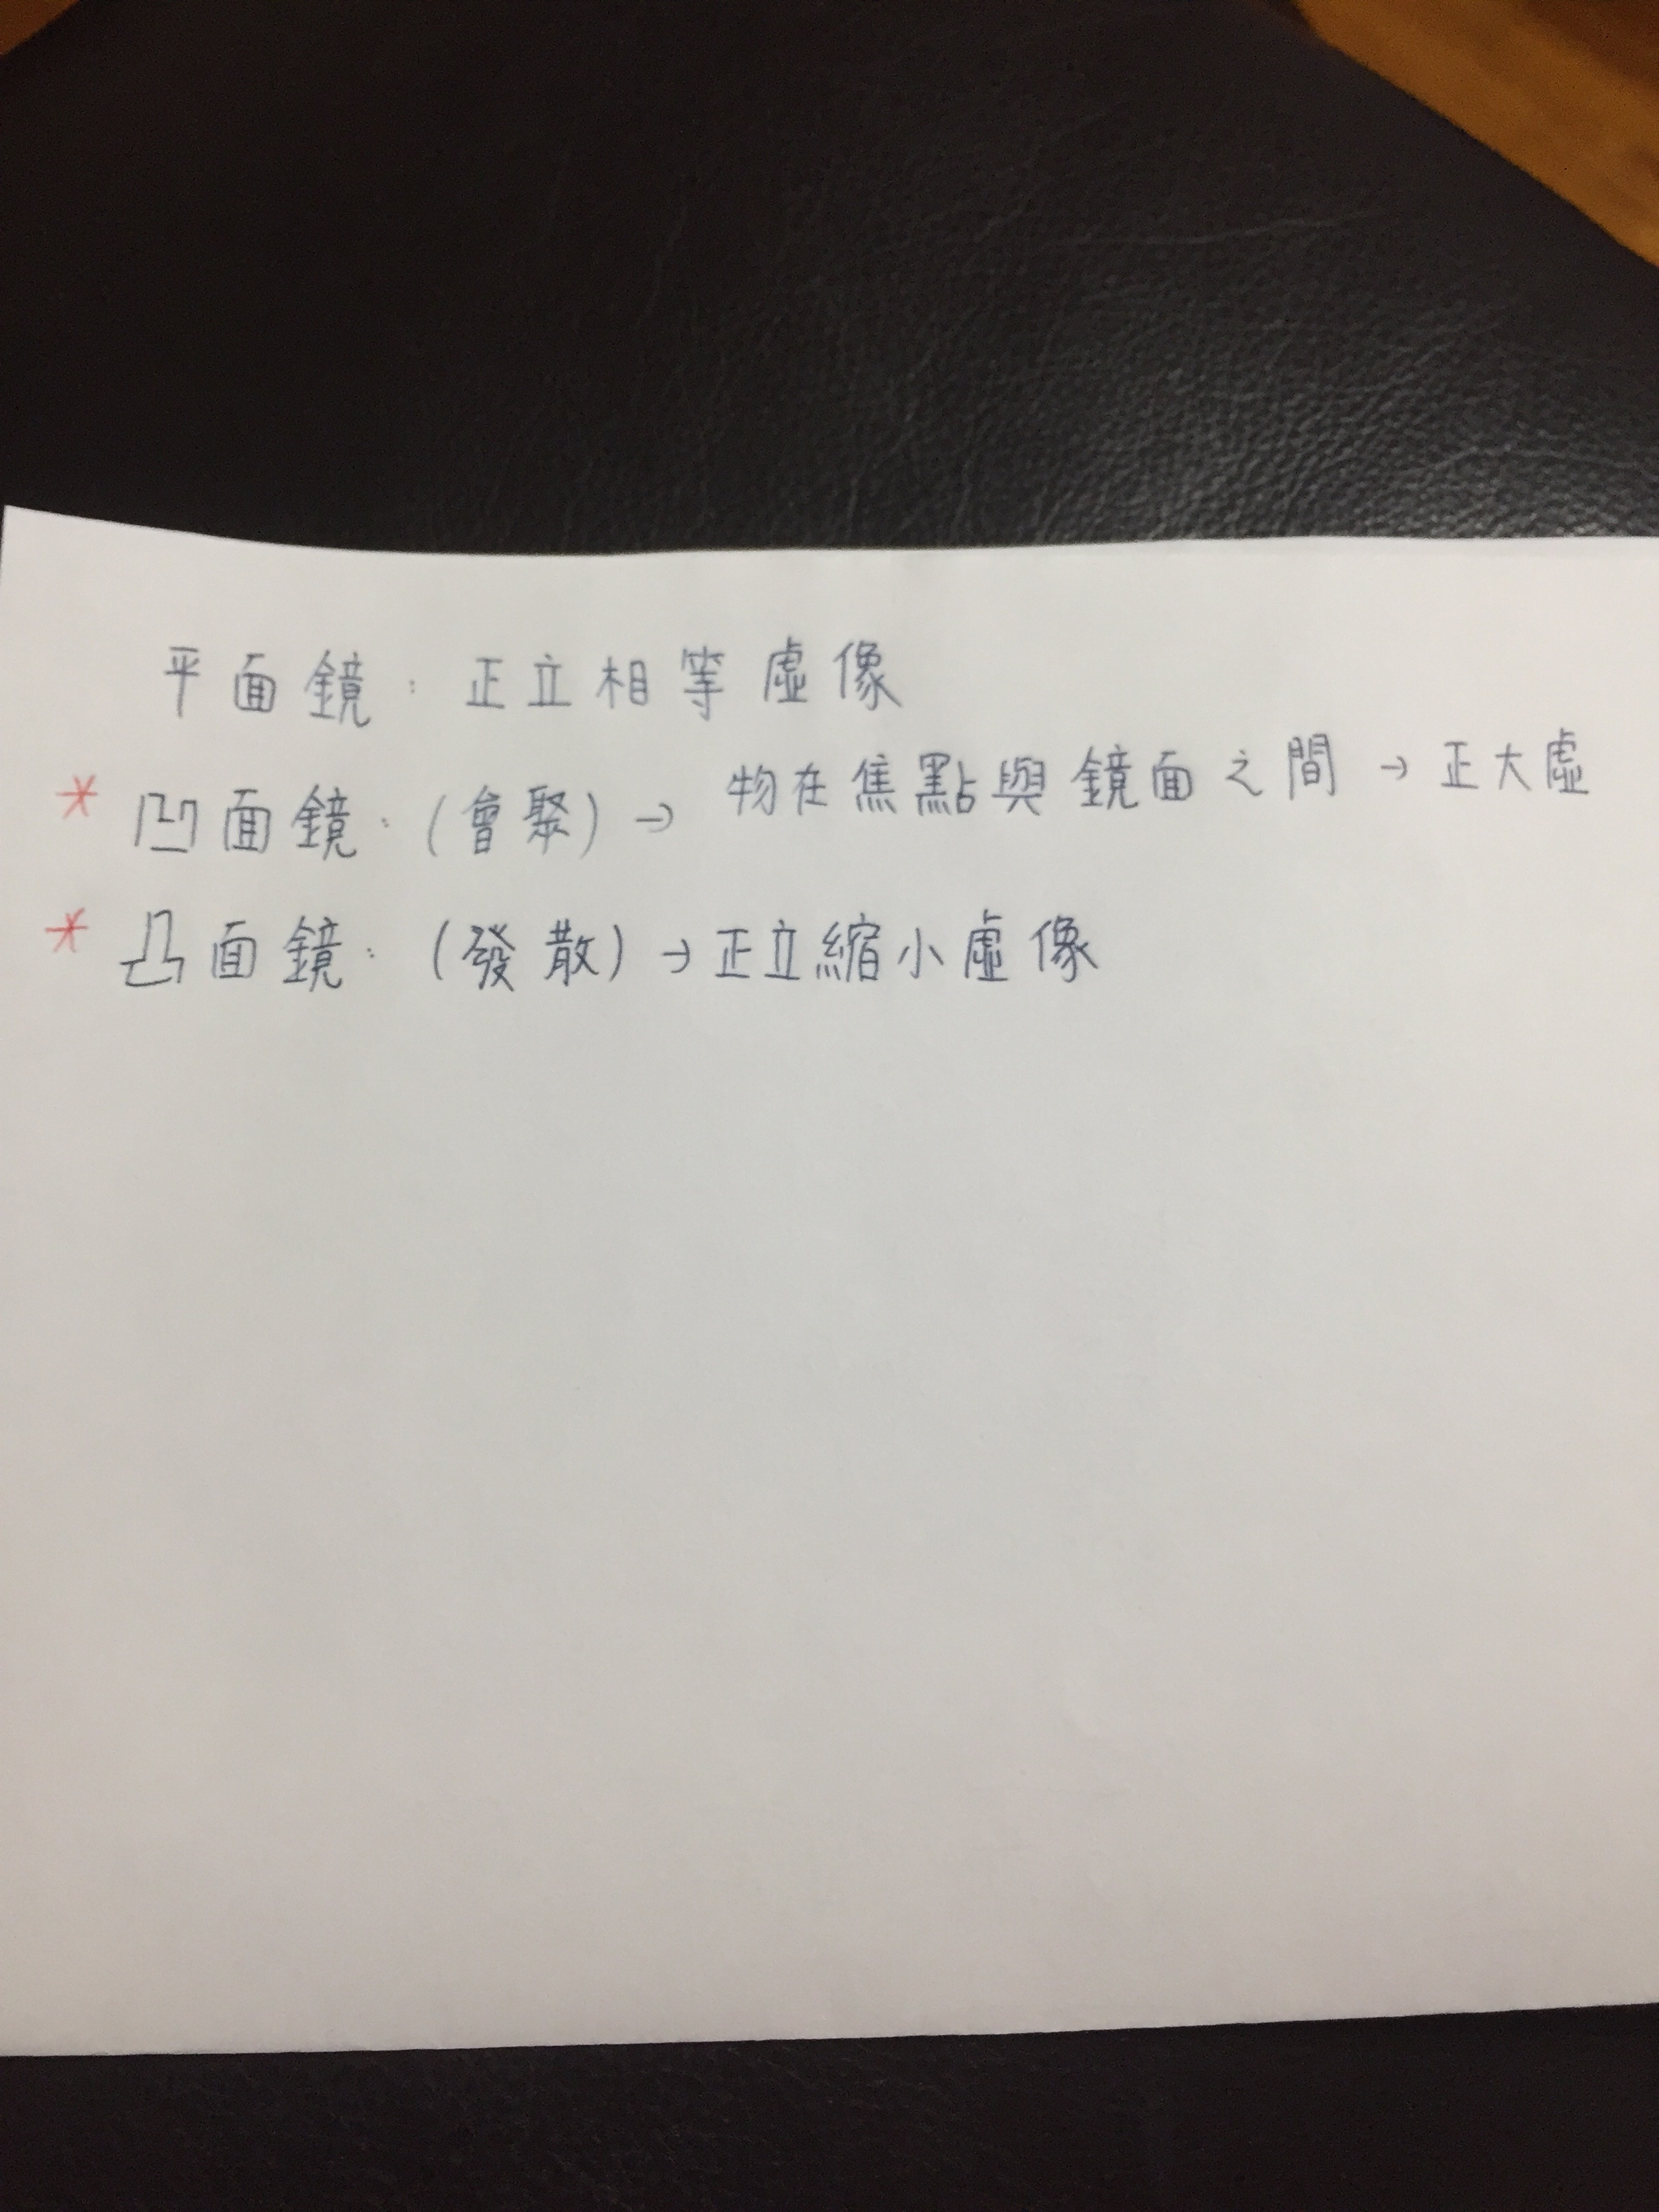 平面鏡：正立相等虛像
* 凹面鏡：(會聚) → 物在焦點與鏡面之間 → 正大虛
* 凸面鏡：(發散) → 正立縮小虛像